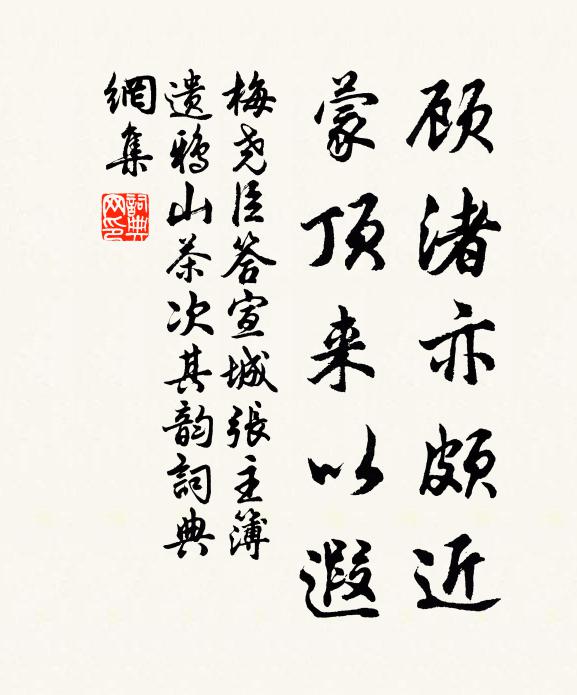 顾渚亦颇近
蒙顶来以遐
梅尧臣答宣城張主簿
遗鸦山茶次其韵詞典
網集
詞典
网印